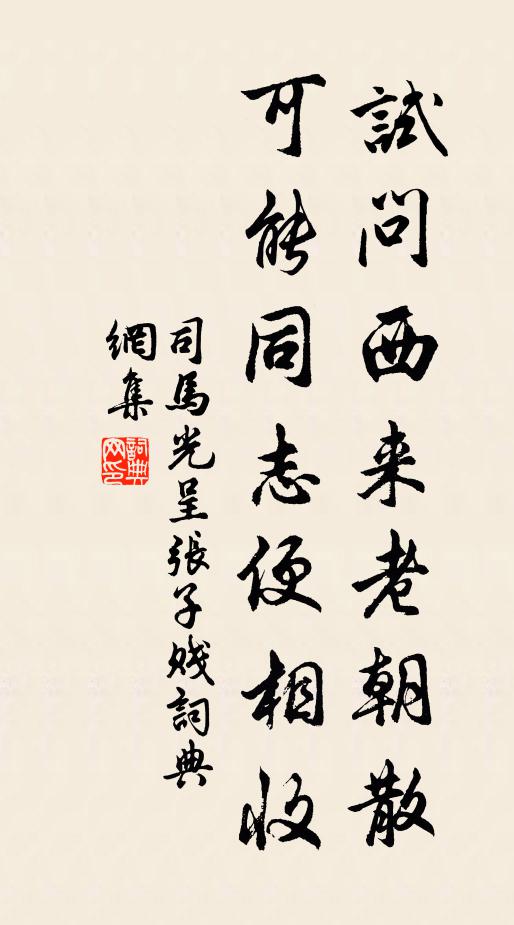 試問西来老朝散
可能同志便相收
司馬光呈張子賤詞典
網集
詞典
网印